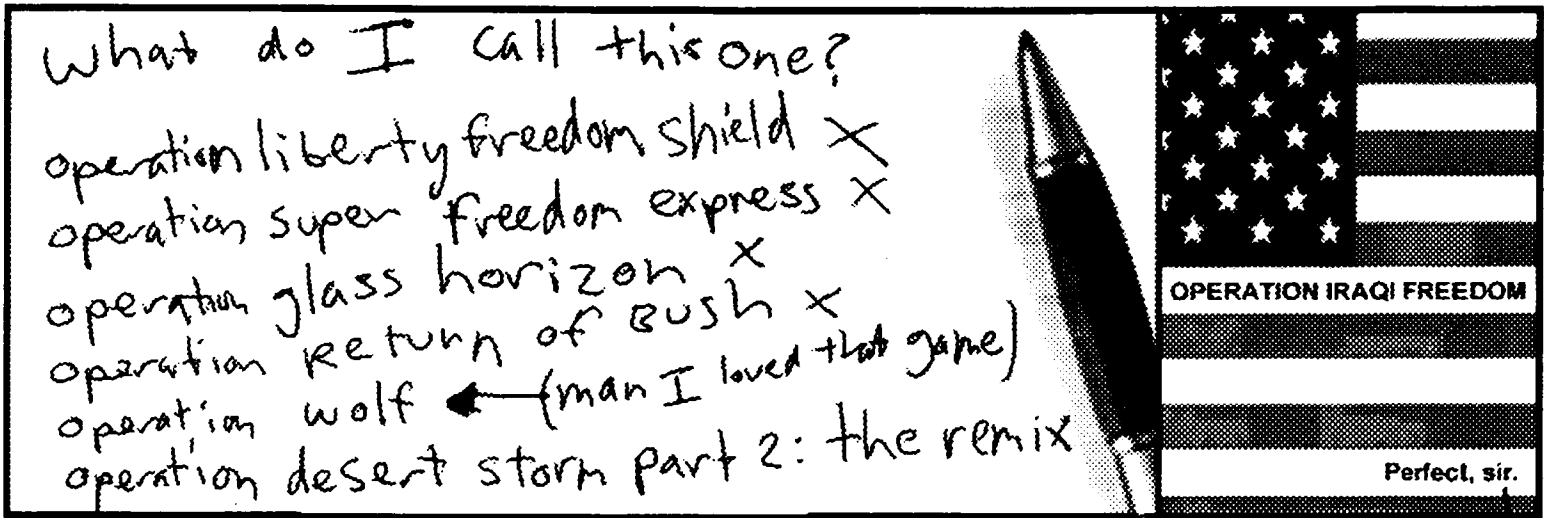 What do I call this one?
operation liberty freedom shield X
operation super freedom express X
operation glass horizon X
operation return of Bush X
operation wolf ← (man I loved that game)
operation desert storm part 2: the remix
OPERATION IRAQI FREEDOM
Perfect, sir.